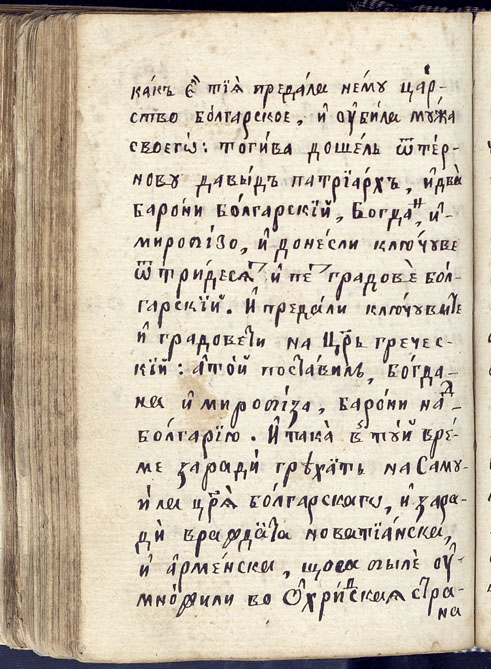 ка́къ є҆ѵтїѧ̀ предала̀ не́мꙋ ца́р-
ство бо́лгарское, и҆ ᲂу҆би́ла мꙋ́жа
своегѡ̀: тоги́ва доше́лъ ѿ те́р-
нову давы́дъ патрїа́рхъ, и҆ два̀
баро́ни бо́лгарскїй, Богда́ⷩ, и҆
и҆ доне́сли клю́чуве
ѿ три́десⷮѧ и҆ пеⷮ градове̏ бо́л-
гарскїй. И҆ преда́ли клю́чувите
и҆ градове́ти на цр҃ь гречес-
кїй: а҆ то́й поста́вилъ, бо́гда-
на и҆ баро́ни наⷣ
болгарїю. И҆ така̀ въ тꙋ́й вре́-
ме заради̏ грѣха́тъ на Самꙋ-
и́ла цр҃ѧ̀ бо́лгарскагѡ, и҆ зара-
ди̏ новатїа́нска,
и҆ а҆рме́нска, щоса биле ᲂу҆-
мно́жили во Ѻ҆хри́ⷣская стра-
на